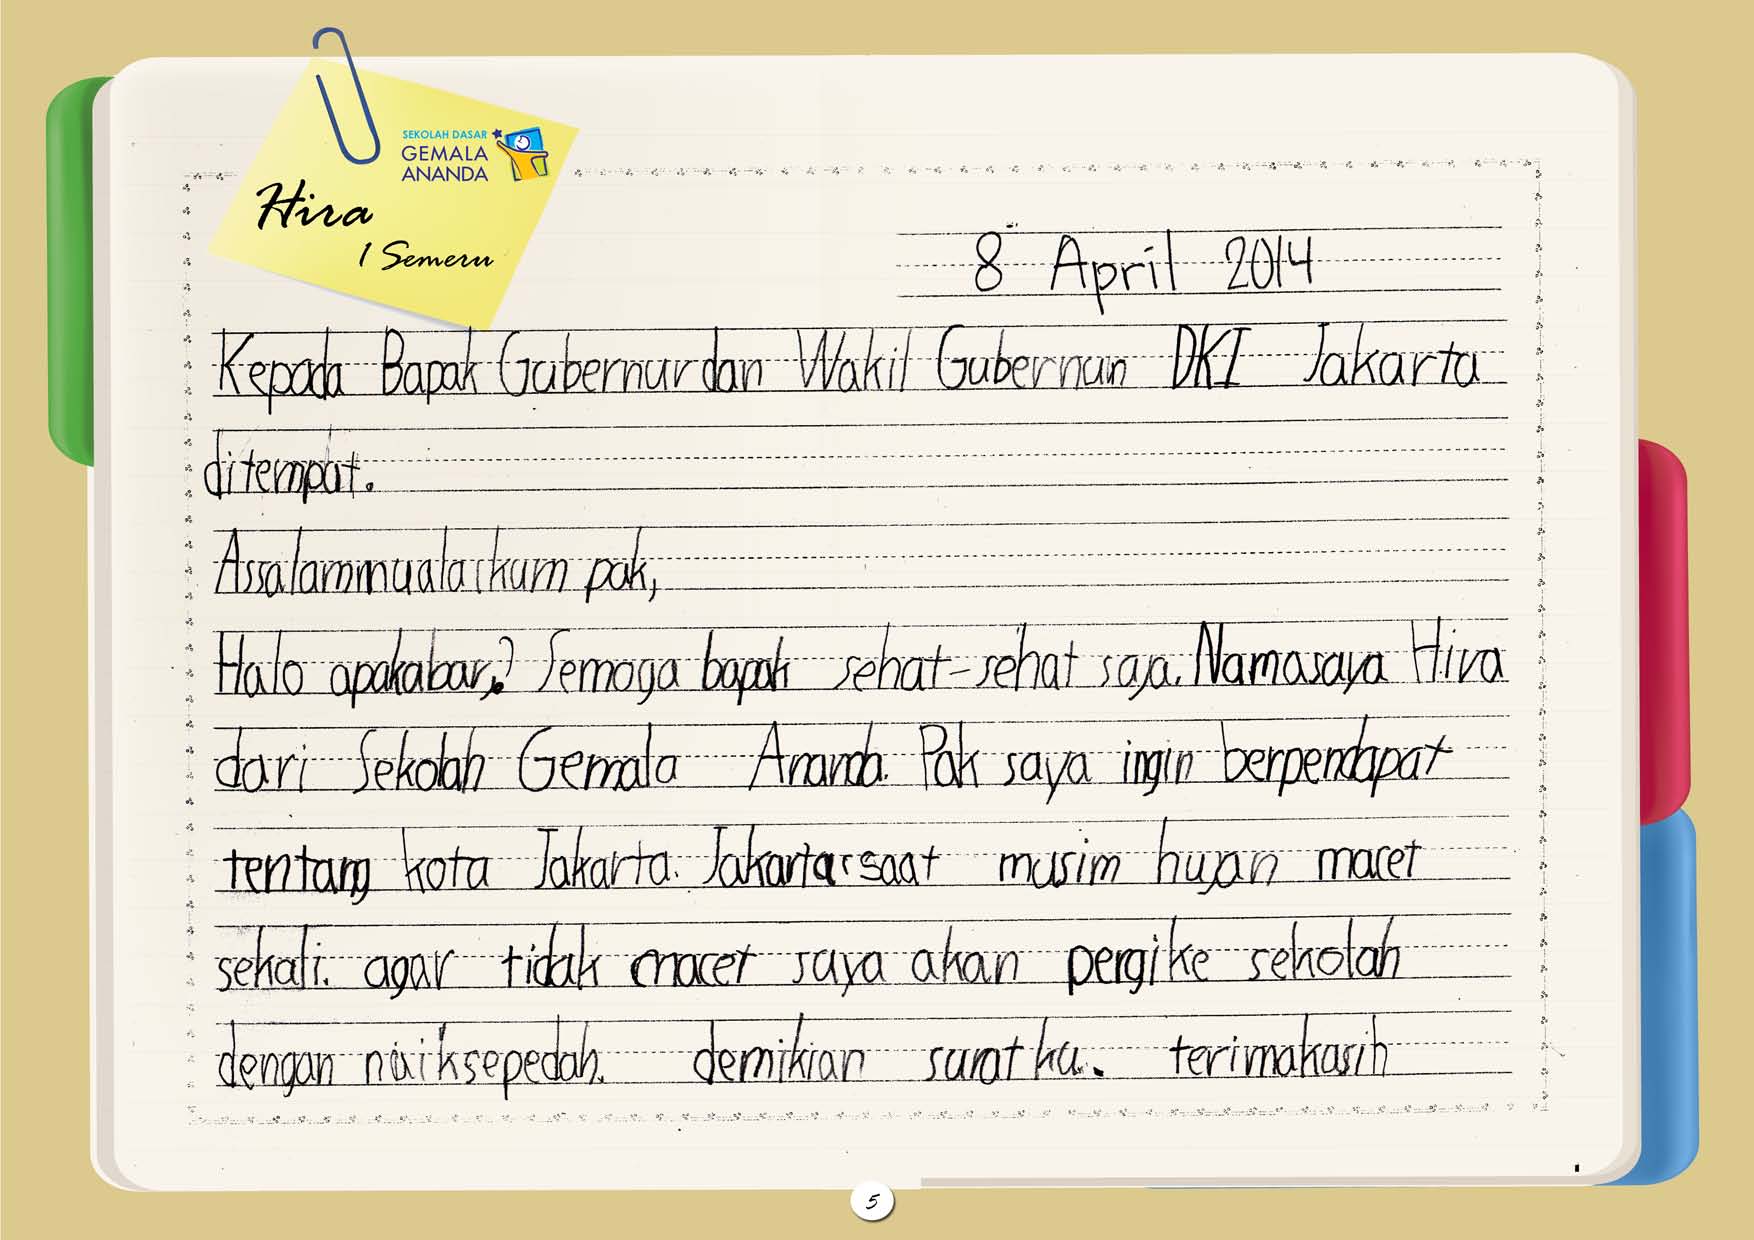 SEKOLAH DASAR
GEMALA
ANANDA
Hira
1 Semeru
8 April 2014
Kepada Bapak Gubernur dan Wakil Gubernun DKI Jakarta
ditempat.
Assalammualaikum pak,
Halo apakabar? Semoga bapak sehat-sehat saja. Namasaya Hira
dari Sekolah Gemala Ananda. Pak saya ingin berpendapat
tentang kota Jakarta. Jakarta saat musim hujan macet
sekali. agar tidak macet saya akan pergike sekolah
dengan naiksepedah. demikian surat ku. terimakasih
5